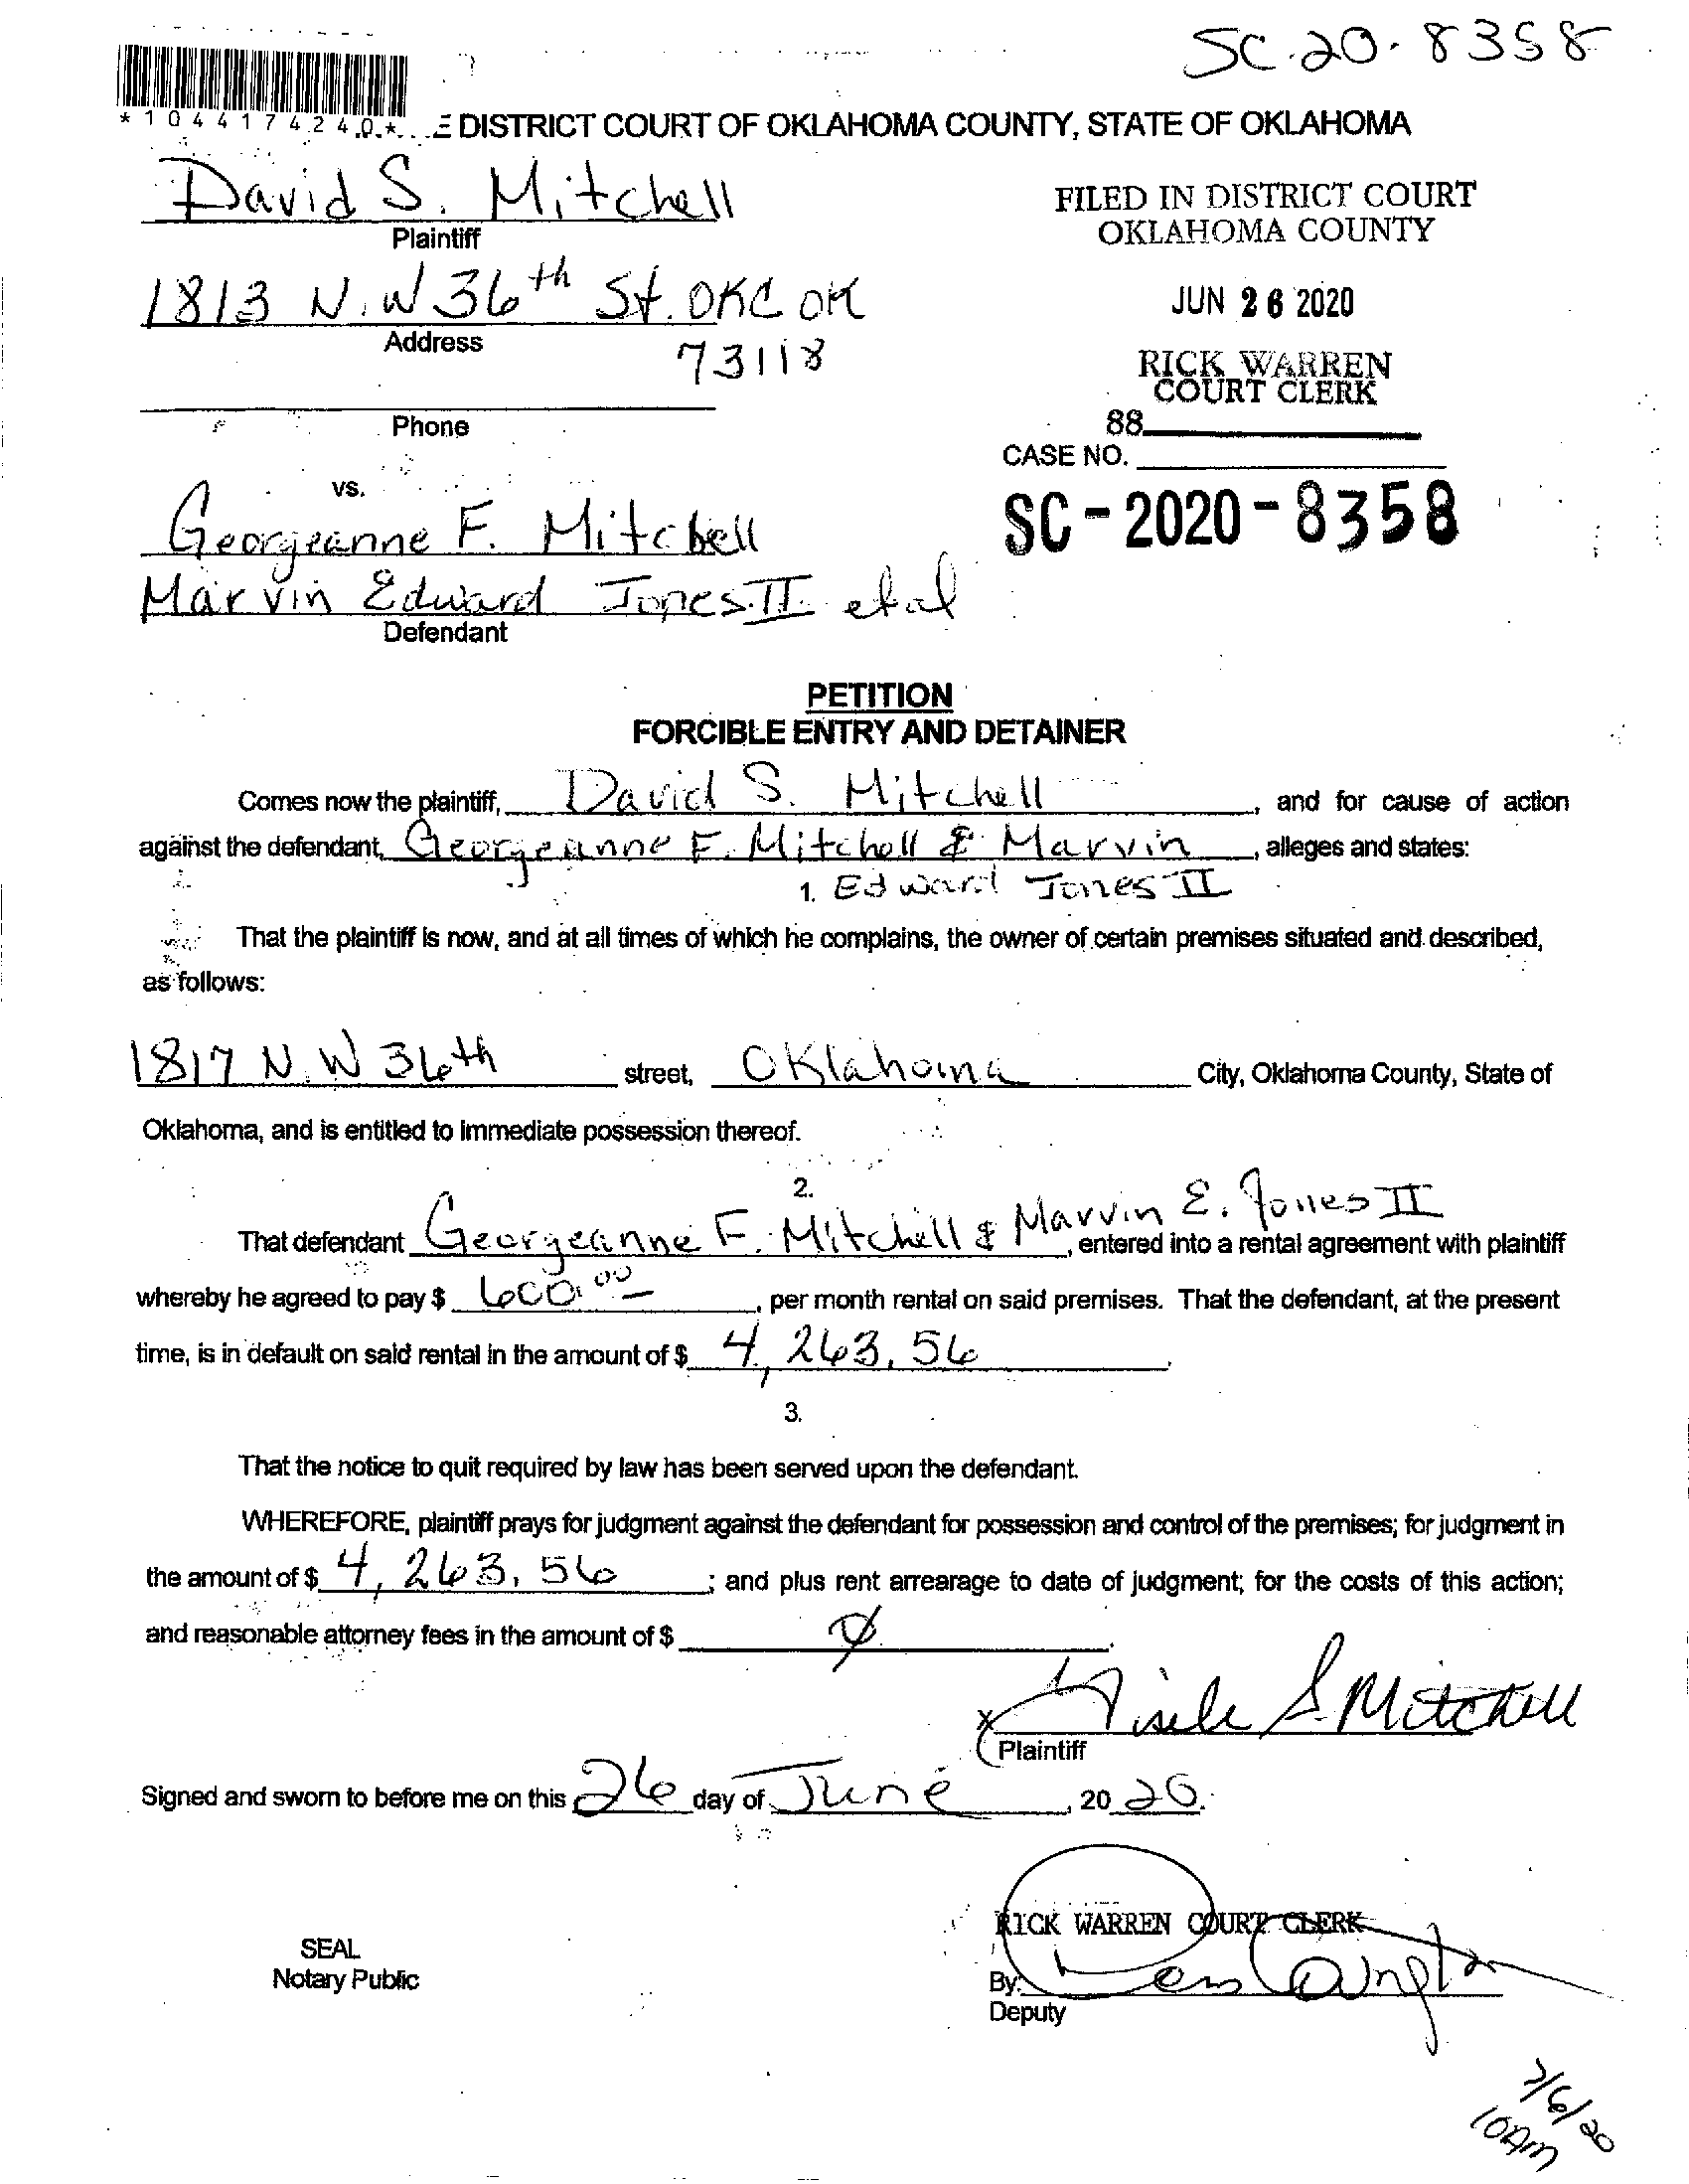 SC-20-8358
*1044174240*
E DISTRICT COURT OF OKLAHOMA COUNTY, STATE OF OKLAHOMA
David S. Mitchell
Plaintiff
FILED IN DISTRICT COURT
OKLAHOMA COUNTY
1813 N.W 36th St. OKC OK
Address
73118
JUN 26 2020
RICK WARREN
COURT CLERK
Phone
88
CASE NO.
vs.
SC-2020-8358
Georgeanne F. Mitchell
Marvin Edward Jones II et al
Defendant
PETITION
FORCIBLE ENTRY AND DETAINER
Comes now the plaintiff, David S. Mitchell, and for cause of action
against the defendant, Georgeanne F. Mitchell & Marvin, alleges and states:
1. Edward Jones II
That the plaintiff is now, and at all times of which he complains, the owner of certain premises situated and described,
as follows:
1817 N.W 36th street, Oklahoma City, Oklahoma County, State of
Oklahoma, and is entitled to immediate possession thereof.
2.
That defendant Georgeanne F. Mitchell & Marvin E. Jones II, entered into a rental agreement with plaintiff
whereby he agreed to pay $ 600.00, per month rental on said premises. That the defendant, at the present
time, is in default on said rental in the amount of $ 4,263.56.
3.
That the notice to quit required by law has been served upon the defendant.
WHEREFORE, plaintiff prays for judgment against the defendant for possession and control of the premises; for judgment in
the amount of $ 4,263.56; and plus rent arrearage to date of judgment; for the costs of this action;
and reasonable attorney fees in the amount of $ ∅.
X S Mitchell
Plaintiff
Signed and sworn to before me on this 26 day of June, 2020.
RICK WARREN COURT CLERK
SEAL
Notary Public
By:
Deputy
7/6/20
10AM